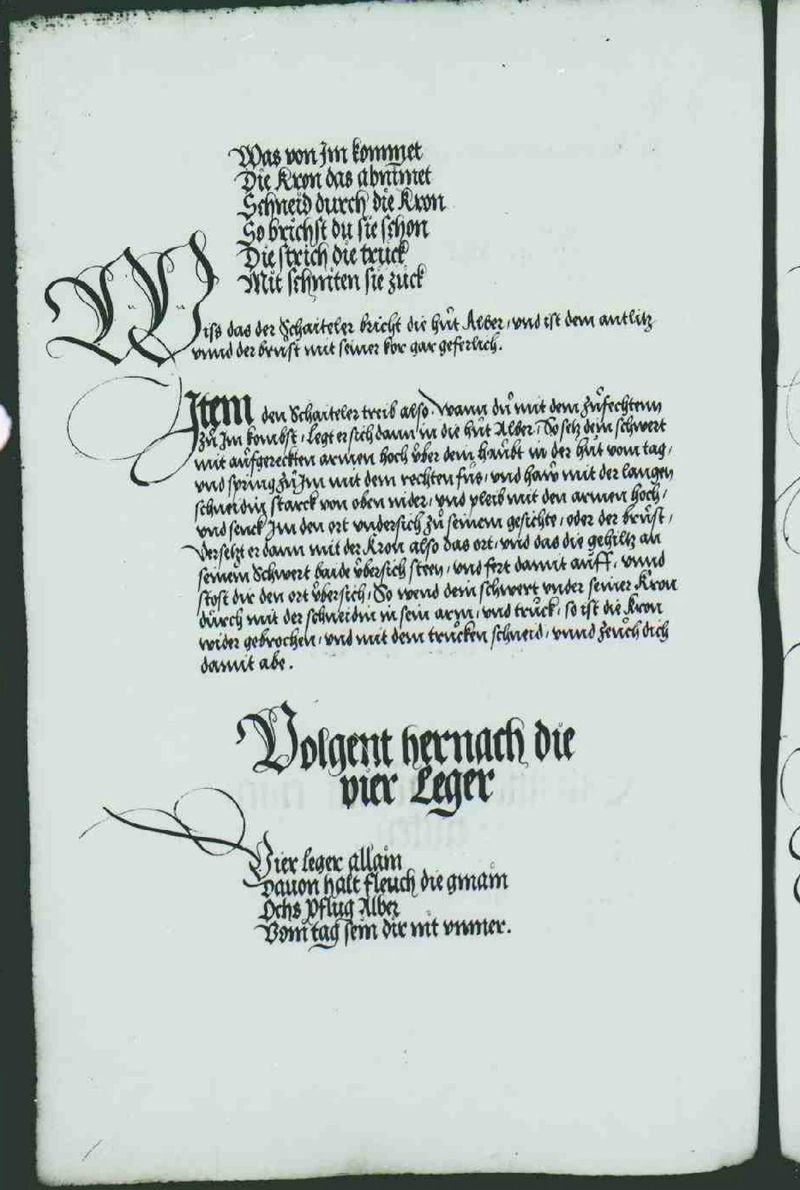 Was von Im kommet
Die Kron das abnimmet
Schneid durch die Kron
So brichst du sie schon
Die strich die truck
Mit schniten sie zuck
Wiss das der Schaiteler bricht die hůt Alber, vnd ist dem antlitz
vnnd der brust mit seiner kor gar geferlich.
Item den Schaiteler treib also. wann dů mit dem Zůfechtenn
Zů Im kombst, Legt er sich dann in die hůt Alber, So setz dein schwert
mit aůfgereckten armen hoch vber dein haůbt in der hůt vom tag,
vnd spring Zů Im mit dem rechten fůs, vnd haw mit der langen
schneidin starck von oben nider, vnd pleib mit den armen hoch,
vnd senck Im den ort vndersich zů seinem gesichte, oder der brůst,
Versetzt er dann mit der Kron also das ort, vnd das die gehiltz an
seinem Schwert baide vbersich steen, vnd fert damit aůff, vnnd
stost dir den ort vbersich, So wend dein schwert vnder seiner Kron
důrch mit der schneidin in sein arm, vnd trůck, so ist die Kron
wider gebrochen, vnd mit dem trucken schneid, vnnd zeuch dich
damit abe.
Volgent hernach die
vier Leger
Vier leger allain
Dauon halt fleuch die gmain
Ochs Pflug Alber
Vom tag sein dir nit vnmer.